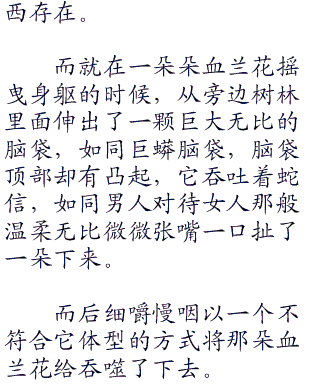 西存在。
而就在一朵朵血兰花摇
曳身躯的时候，从旁边树林
里面伸出了一颗巨大无比的
脑袋，如同巨蟒脑袋，脑袋
顶部却有凸起，它吞吐着蛇
信，如同男人对待女人那般
温柔无比微微张嘴一口扯了
一朵下来。
而后细嚼慢咽以一个不
符合它体型的方式将那朵血
兰花给吞噬了下去。